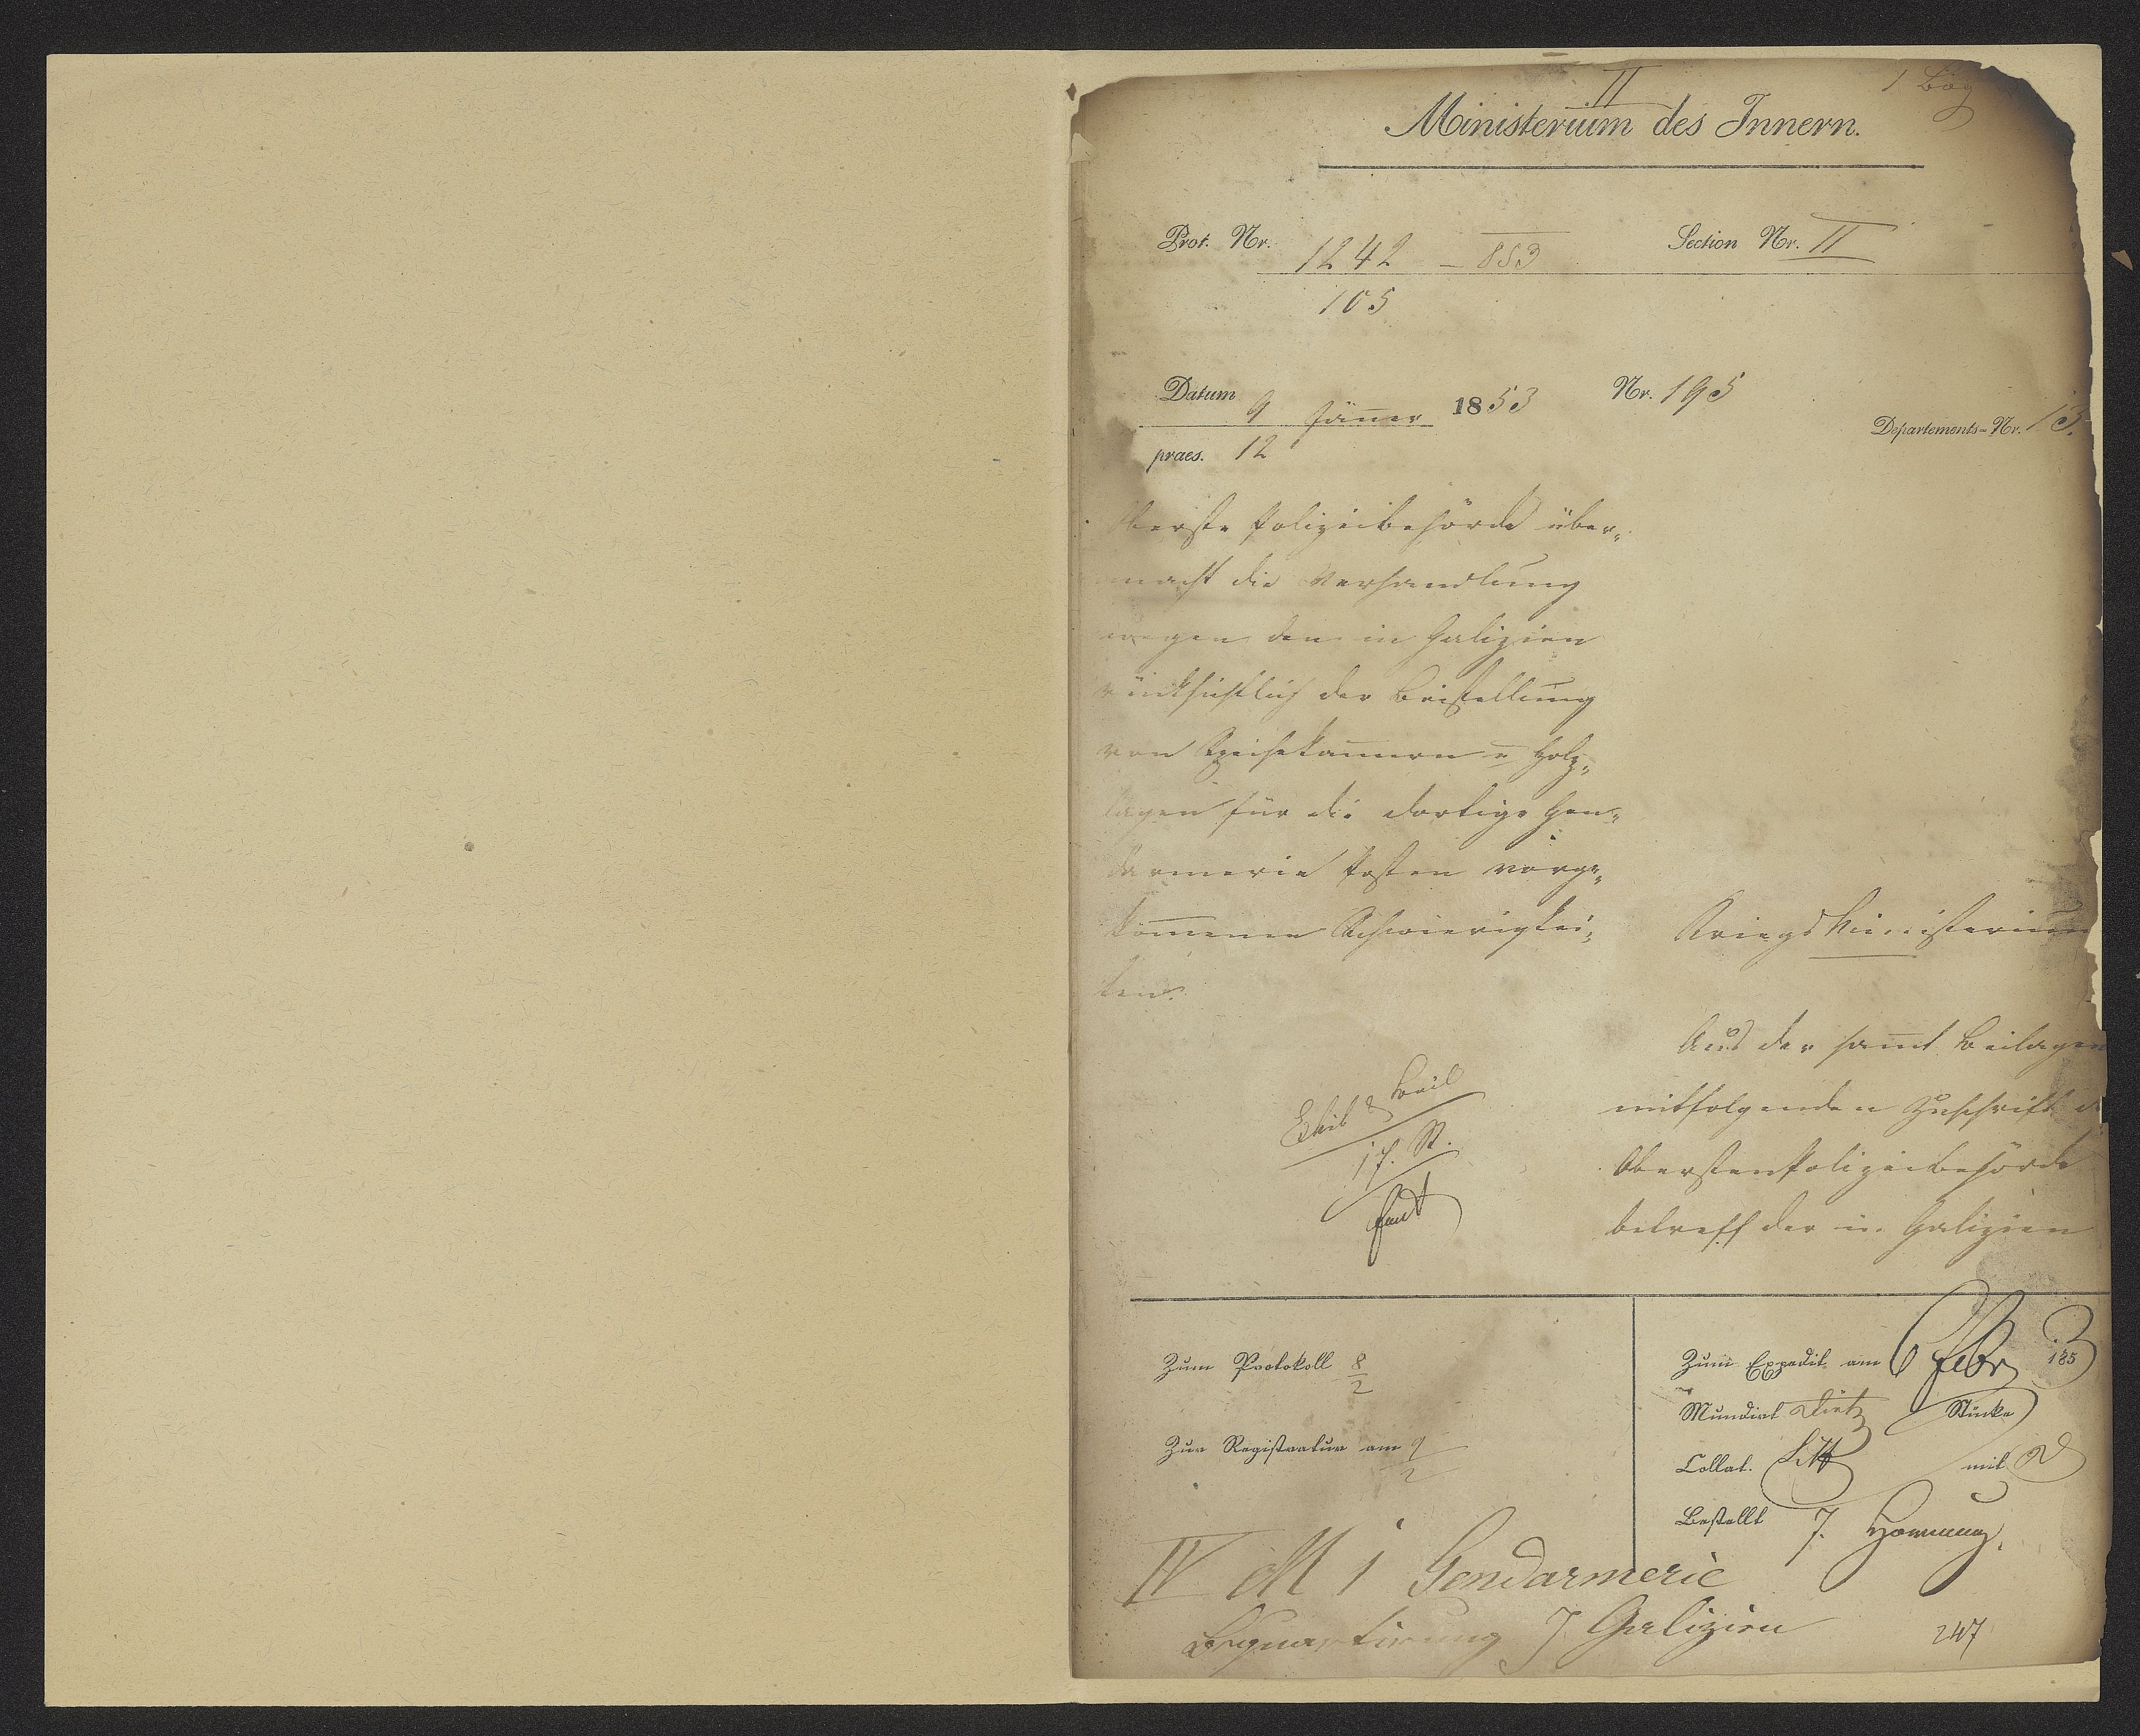 II
1 Bog
Ministerium des Innern.
Prot. Nr. 1242 - 853
Section Nr. II
105
Datum 9 Jäner 1853
Nr. 195
Departements-Nr. 13.
praes. 12
Oberste Polizeibehörde über-
macht die Verhandlung
wegen den in Galizien
rücksichtlich der Beistellung
von Speisekamern u Holz-
lagen für die dortige Gen-
darmerie Posten vorge-
komenen Schwierigkei-
ten.
Exhib & Beil
17. St.
Kriegs Ministerium
Aus der samt Beilagen
mitfolgenden Zuschrift
Obersten Polizeibehörde
betreff der in Galizien
Zum Protokoll 8/2
Zur Registratur am 9/2
Zum Expedit am 6 Febr 1853
Mundirt Dietz Stücke
Collat. mit
Bestellt J. Hornung
IV M 1 Gendarmerie
Bequartirung J Galizien
247